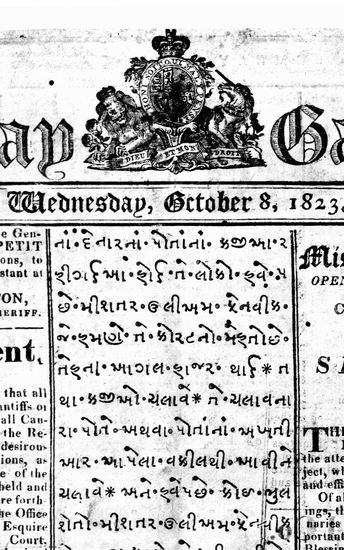 HONI SOIT QUI MAL Y PENSE
DIEU ET MON DROIT
ay Ga
Wednesday, October 8, 1823.
e Gen-
PETIT
ons, to
stant at
TON,
HERIFF.
ent,
that all
antiffs or
all Cau-
the Re-
desirous
ions, as
e of the
held and
re forth
e Office
Esquire
Court.
નાં • દેનારનાં • પોતાનાં • કજીઆ • ર
હોઈ • તે • લોકો • હવે
છે • મીશતર • ઉલીઅમ • ફેનવીક
જેહમણે • તે • કોરટનો • મેહતોછે
તેહના • આગલ • હાજર • થાઈ * ત
થા • કજીઓ • ચલાવે * તે • ચલાવના
રા • પોતે • અથવા • પોતાનાં • અખતી
આર • આપેલા • વકીલથી • આવીને
ચલાવે * અને • કોઇ • ભુલ
શેતો • મીશતર • ઉલીઅમ • ફેનવીક
Mis
OPEN
C
S A
TH
the atte
ject, wh
and effi
Of al
ings, th
naries
portant
Blessin